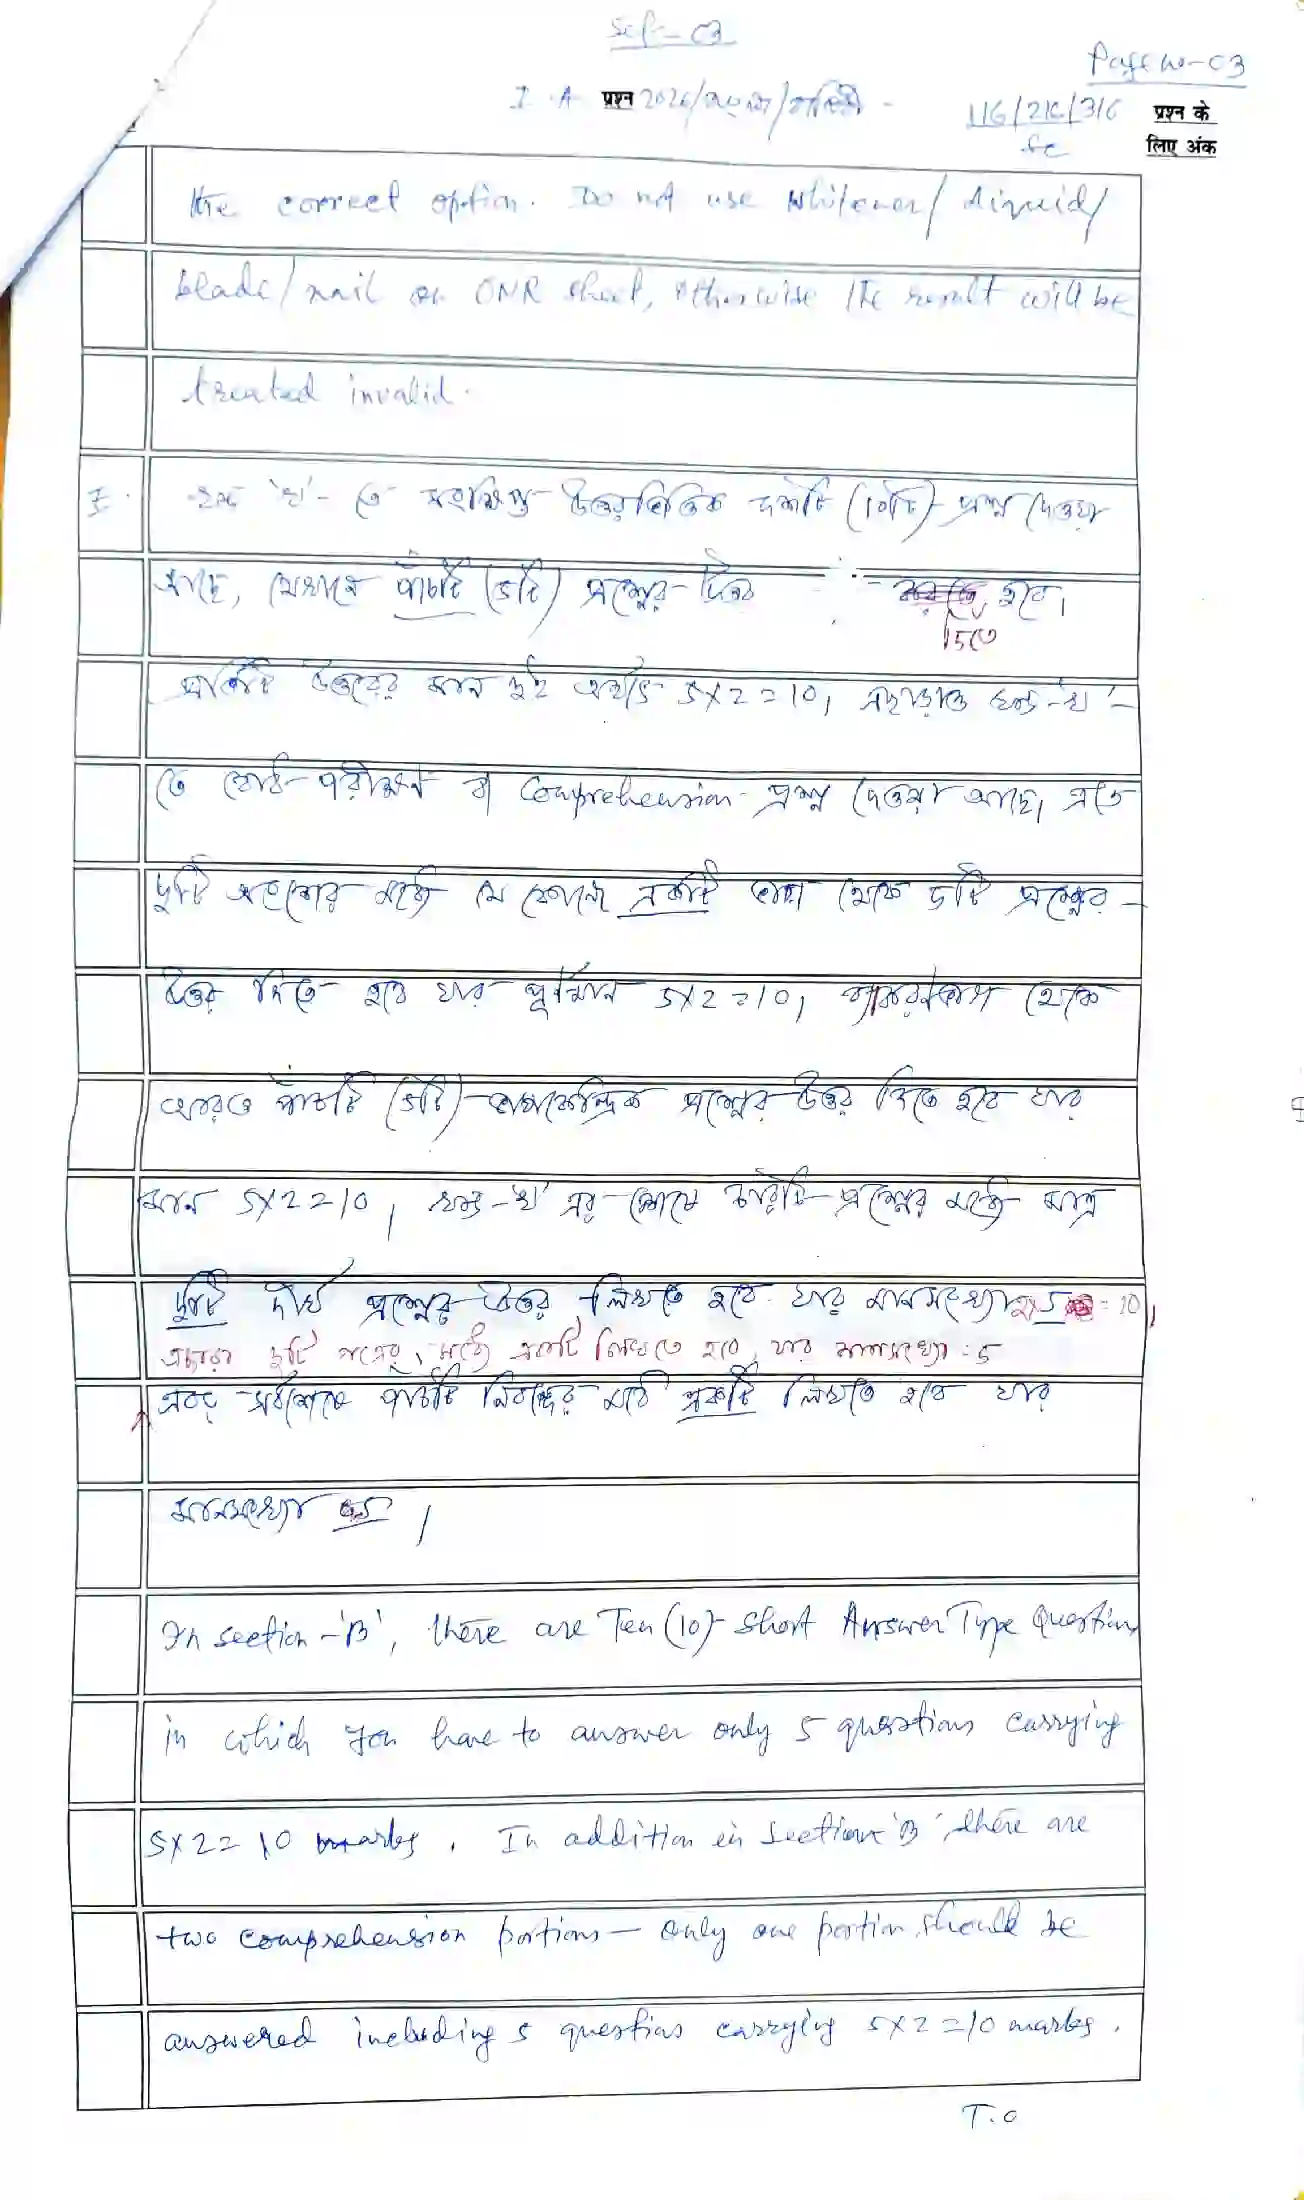 Set-03
Page no-03
I.A. प्रश्न 2026/
116/216/316
प्रश्न के
लिए अंक
the correct option. Do not use whitener/liquid/
blade/nail on OMR sheet, otherwise the result will be
treated invalid.
খন্ড 'খ'- তে সংক্ষিপ্ত উত্তরভিত্তিক দশটি (10টি) প্রশ্ন দেওয়া
আছে, যেখানে পাঁচটি (5টি) প্রশ্নের উত্তর দিতে হবে।
প্রতিটি উত্তরের মান দুই অর্থাৎ 5x2=10, এছাড়াও খন্ড-'খ'-
তে বোধ-পরীক্ষণ বা Comprehension প্রশ্ন দেওয়া আছে, এতে
দুটি অংশের মধ্যে যে কোনো একটি থেকে 5টি প্রশ্নের
উত্তর দিতে হবে যার পূর্ণমান 5x2=10, ব্যাকরণ অংশ থেকে
আরও পাঁচটি (5টি) প্রশ্নের উত্তর দিতে হবে যার
মান 5x2=10, খন্ড-'খ' এর শেষে চারটি প্রশ্নের মধ্যে মাত্র
দুটি দীর্ঘ প্রশ্নের উত্তর লিখতে হবে যার মানসংখ্যা 2x5=10,
এছাড়া দুটি পত্রের মধ্যে একটি লিখতে হবে, যার মানসংখ্যা : 5
এবং সর্বশেষে পাঁচটি নিবন্ধের মধ্যে একটি লিখতে হবে যার
মানসংখ্যা
In section-'B', there are Ten (10) Short Answer Type Question
in which you have to answer only 5 questions carrying
5x2=10 marks. In addition in Section-'B', there are
two comprehension portions - only one portion should be
answered including 5 question carrying 5x2=10 marks.
T.O